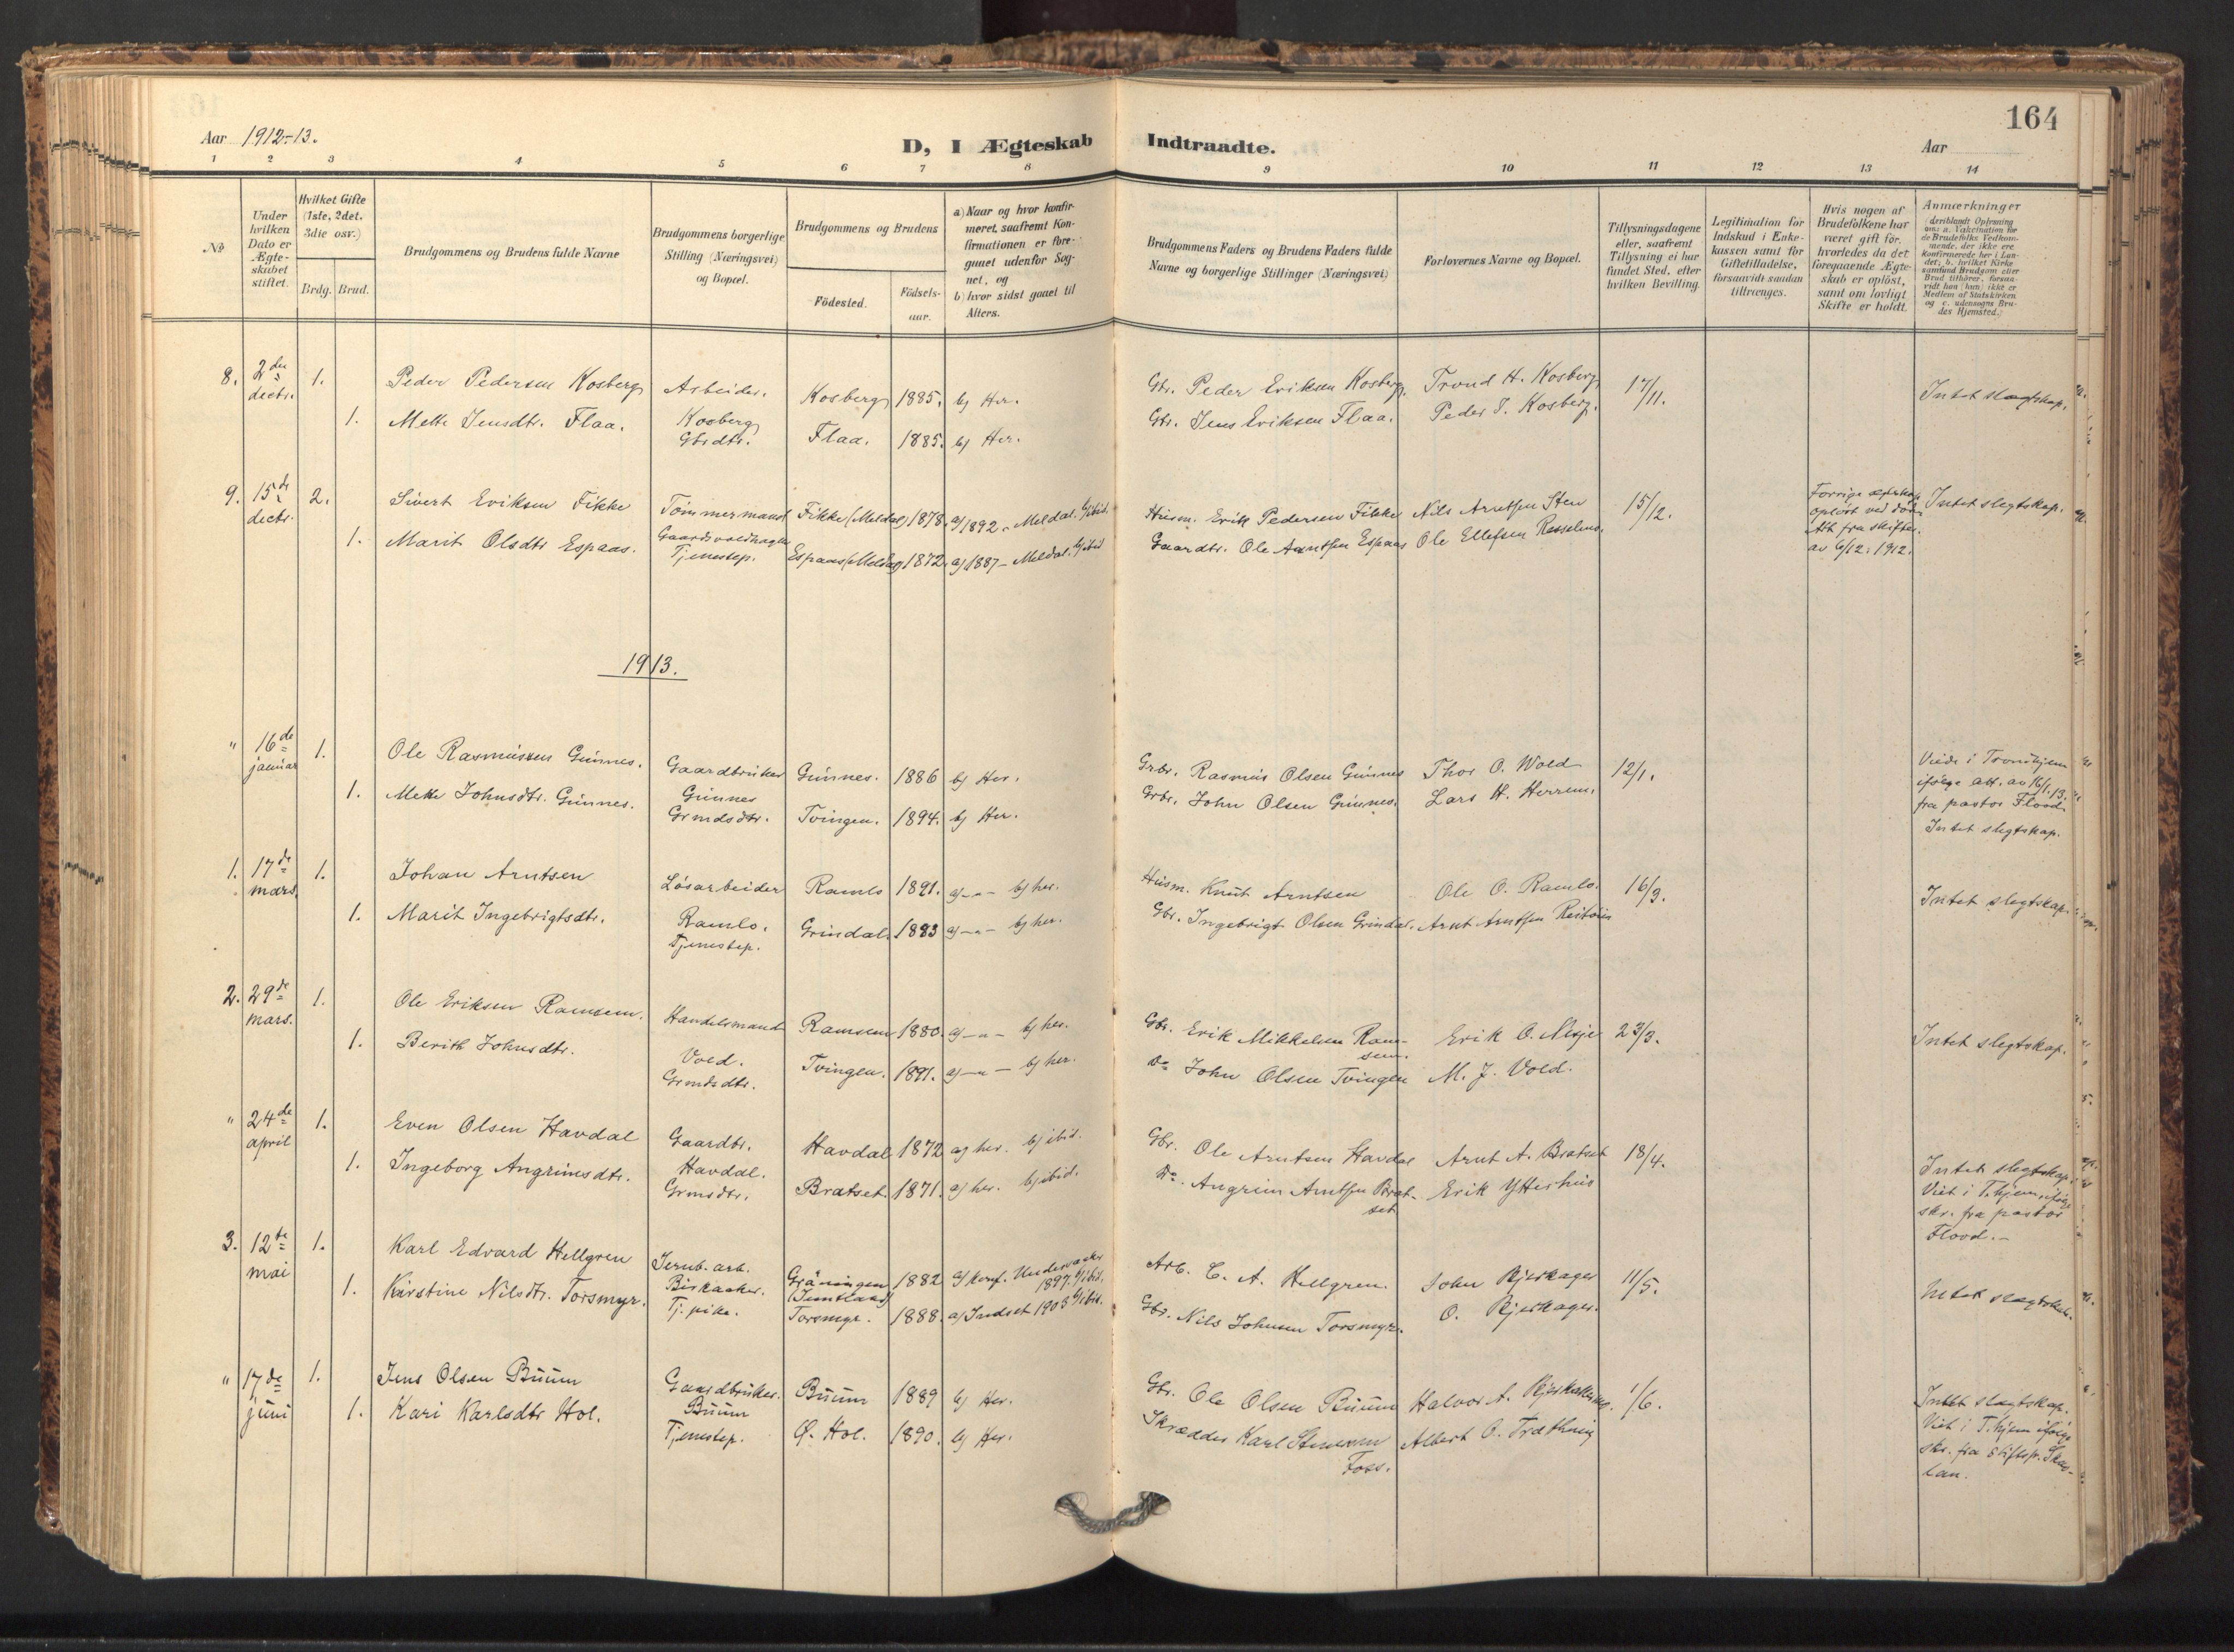 164
Aar 1912-13.
D, I Ægteskab Indtraadte.
Aar
1 2 3 4 5 6 7 8 9 10 11 12 13 14
No
Under hvilken Dato er Ægteskabet stiftet.
Hvilket Gifte (1ste, 2det, 3die osv.)
Brdg. Brud.
Brudgommens og Brudens fulde Navne
Brudgommens borgerlige Stilling (Næringsvei) og Bopæl.
Brudgommens og Brudens
Födested.
Födsels-aar.
a) Naar og hvor konfir-
meret, saafremt Kon-
firmationen er fore-
gaaet udenfor Sog-
net, og
b) hvor sidst gaaet til
Alters.
Brudgommens Faders og Brudens Faders fulde
Navne og borgerlige Stillinger (Næringsvei)
Forlovernes Navne og Bopæl.
Tillysningsdagene
eller, saafremt
Tillysning ei har
fundet Sted, efter
hvilken Bevilling.
Legitimation for
Indskud i Enke-
kassen samt for
Giftetilladelse,
forsaavidt saadan
tiltrænges.
Hvis nogen af
Brudefolkene har
været gift för,
hvorledes da det
foregaaende Ægte-
skab er oplöst,
samt om lovligt
Skifte er holdt.
Anmærkninger
(deriblandt Oplysning
om: a. Vakcination for
de Brudefolks Vedkom-
mende, der ikke ere
Konfirmerede her i Lan-
det; b. hvilket Kirke
samfund Brudgom eller
Brud tilhörer, forsaa-
vidt han (hun) ikke er
Medlem af Statskirken
og c. udensogns Bru-
des Hjemsted.)
8. 2den dectr. 1. Peder Pedersen Kosberg Arbeider. Kosberg 1885. b) Her. Gbr. Peder Eriksen Kosberg. Trond H. Kosberg 17/11. Intet slægtskap.
1. Mette Jensdtr. Flaa. Kosberg Gbrdtr. Flaa. 1885. b) Her. Gbr. Jens Eriksen Flaa. Peder J. Kosberg.
9. 15de dectr. 2. Sivert Eriksen Fikke Tömmermand Fikke (Meldal) 1878. a) 1892 - Meldal. b) ibid. Husm. Erik Pedersen Fikke Nils Arntsen Sten 15/12. Forrige ægteskap oplöst ved död. Att. fra skifter. av 6/12. 1912. Intet slegtskap.
1. Marit Olsdtr Espaas. Tjenestep. Espaas (Meldal) 1872. a) 1887 - Meldal. b) ibid Gaardbr. Ole Arntsen Espaas Ole Ellefsen
1913.
" 16de januar 1. Ole Rasmussen Gunnes. Gaardbruker Gunnes. 1886 b) Her. Grbr. Rasmus Olsen Gunnes Thor O. Wold 12/1. Viede i Trondhjem ifölge att. av 16/1. 13. fra pastor Flood. Intet slegtskap.
1. Mette Johnsdtr. Gunnes. Gunnes Grmdsdtr. Tvingen. 1894. b) Her. Grbr. John Olsen Gunnes. Lars H. Herrem.
1. 17de mars. 1. Johan Arntsen Lösarbeider Ramlo 1891. a) -"- b) her. Husm. Knut Arntsen Ole O. Ramlo. 16/3. Intet slegtskap.
1. Marit Ingebrigtsdtr. Ramlo. Tjenestep. Grindal. 1883 a) -"- b) her. Gbr. Ingebrigt Olsen Grindal. Arnt Arntsen
2. 29de mars. 1. Ole Eriksen Ramsem. Handelsmand Ramsem 1880. a) -"- b) her. Gbr. Erik Mikkelsen Ram-sem. Erik O. Nesje 23/3. Intet slegtskap.
1. Berith Johnsdtr. Vold. Grmdsdtr. Tvingen. 1891. a) -"- b) her. Do John Olsen Tvingen M. J. Vold.
" 24de april 1. Even Olsen Havdal Gaardbr. Havdal 1872 a) her. b) ibid. Gbr. Ole Arntsen Havdal Arnt A. Bratset 18/4. Intet slegtskap. Viet i T.hjem ifölge skr. fra pastor Flood. -
1. Ingeborg Angrimsdtr. Havdal. Grmsdtr. Bratset. 1871. a) her. b) ibid. Do. Angrim Arntsen Brat-set Erik Ytterhus
3. 12te mai 1. Karl Edvard Hellgren Jernb. arb. Gräningen (Jemtland) 1882 a) konf. Undersaaker 1897. b) ibid. Arb. C. A. Hellgren. John Bjerkager 11/5. Intet slegtskab.
1. Kirstine Nilsdtr. Torsmyr. Birkaaker. Tj. pike. Torsmyr. 1888. a) Indset 1903 b) ibid. Gbr. Nils Johnsen Torsmyr. O. Bjerkager.
" 17de juni 1. Jens Olsen Buum Gaardbruker. Buum 1889 b) Her. Gbr. Ole Olsen Buum Halvor A. 1/6. Intet slegtskap. Viet i T.hjem ifölge skr. fra Stiftspr. Skaa-lan.
1. Kari Karlsdtr Hol. Buum Tjenestep. Ø. Hol. 1890. b) Her. Skrædder Karl Foss. Albert O. Træthaug